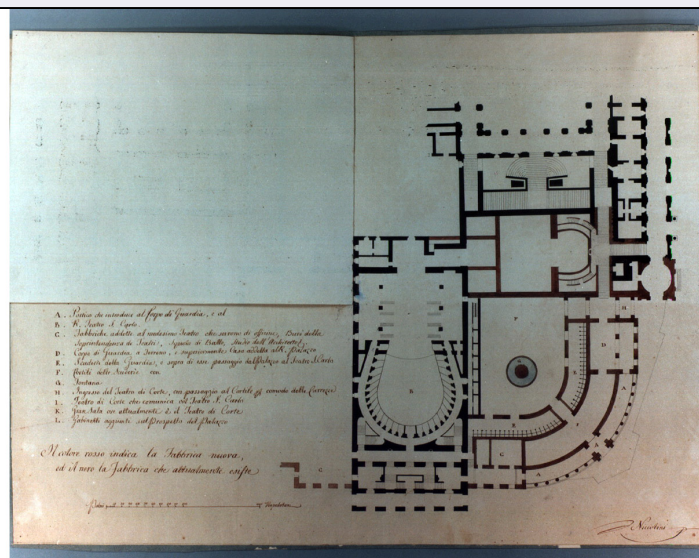 A. Portico che introduce al Corpo di Guardia, e al
B. R. Teatro S. Carlo
C. Fabbriche addette al medesimo Teatro che servono di officine, Burò della
Soprintendenza de' Teatri, Scuola di Ballo, Studio dell'Architetto
D. Corpo di Guardia a terreno, e superiormente Casa addetta al R. Palazzo
E. della Guardia, e sopra di esse passaggio dal Palazzo al Teatro S. Carlo
F. Cortili delle con
G. Fontana
H. Ingresso del Teatro di Corte, con passaggio al Cortile comodo delle Carrozze
I. Teatro di Corte che comunica col Teatro S. Carlo
K. Gran Sala ove attualmente è il Teatro di Corte
L. Gabinetti aggiunti sul Prospetto del Palazzo
Il colore rosso indica la Fabbrica nuova,
ed il nero la Fabbrica che attualmente esiste
Niccolini